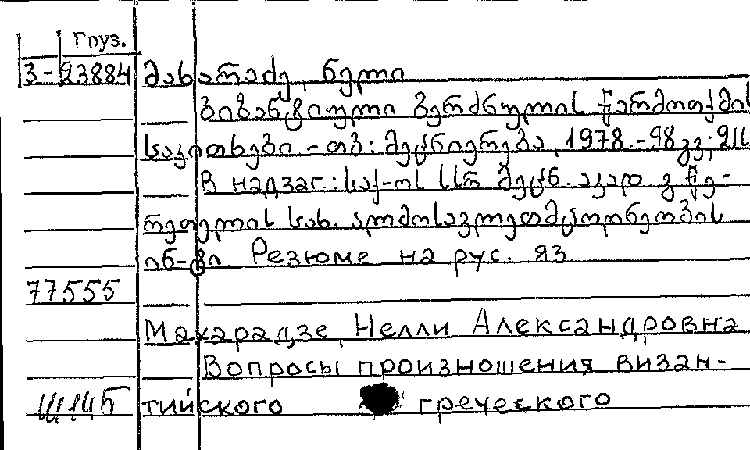 Груз.
3-23884 მახარაძე, ნელი
ბიზანტიური ბერძნულის წარმოთქმის
საკითხები - თბ: მეცნიერება, 1978.-98 გვ;
В надзаг.: საქ-ოს სსრ მეცნ. აკად გ წე-
რეთელის სახ. აღმოსავლეთმცოდნეობის
ინ-ტი Резюме на рус. яз
77555
Махарадзе, Нелли Александровна
Вопросы произношения визан-
тийского греческого